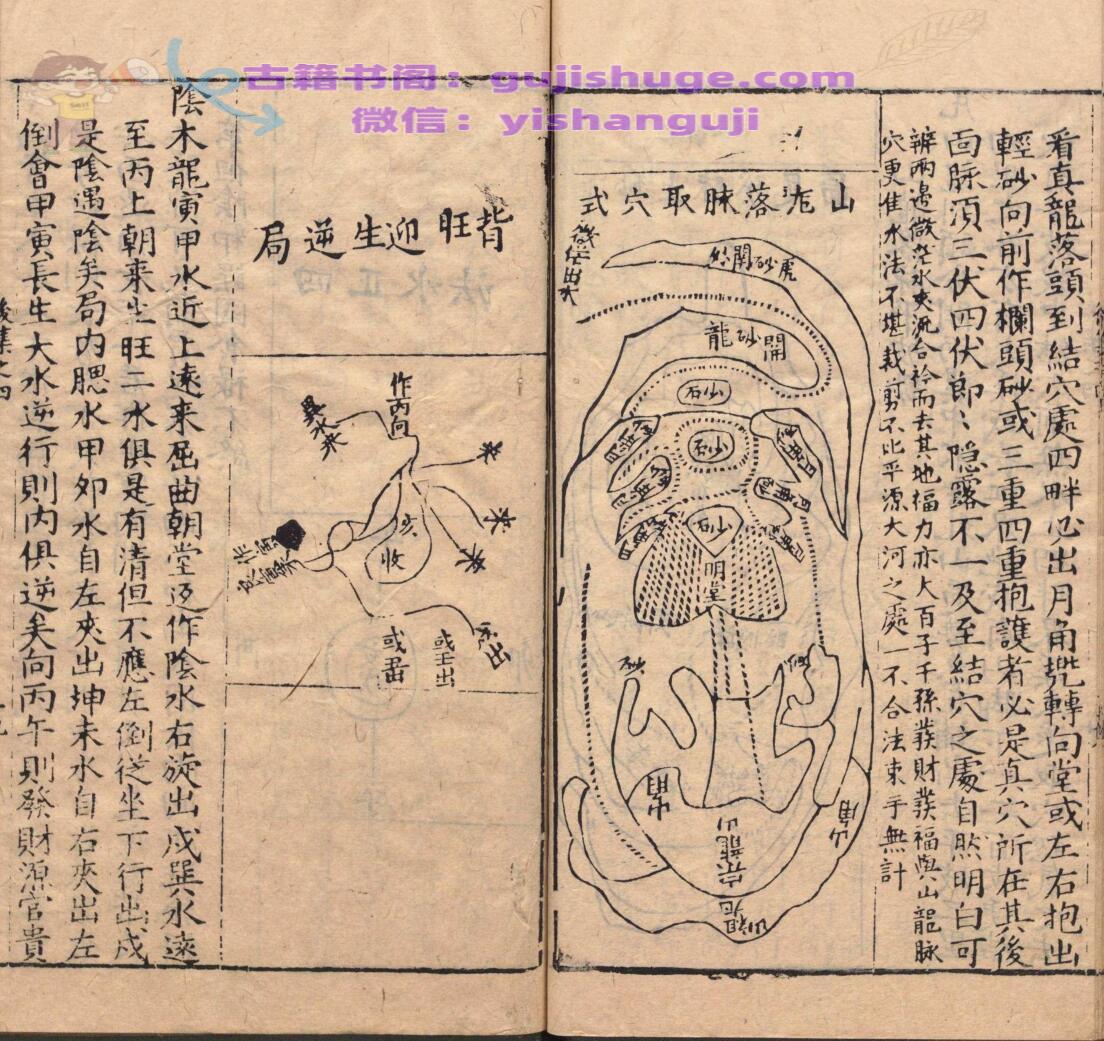 古籍书阁：gujishuge.com
微信：yishanguji
看真龍落頭到結穴處四畔必出月角兠轉向堂或左右抱出
輕砂向前作欄頭砂或三重四重抱護者必是真穴所在其後
靣脉湏三伏四伏節〻隐露不一及至結穴之處自然明白可
辨兩邊微茫水夾流合襟而去其地福力亦大百子千孫發財發福與山龍脉
穴更准水法不堪裁剪不比平源大河之處一不合法束手無計
山龙落脉取穴式
微茫出水
虎砂開給
開砂龍
砂石
砂石
砂
明堂
砂
背旺迎生逆局
作丙向
巽水来
来
来
来
亥
收
流出
或壬出
或
陰木龍寅甲水近上遠来屈曲朝堂迓作陰水右旋出戍巽水遠
至丙上朝来生旺二水俱是有清但不應左倒従坐下行出戍
是陰遇陰矣局内腮水甲夘水自左夾出坤未水自右夾出左
倒會甲寅長生大水逆行則内俱逆矣向丙午則發財源官貴
後集之四